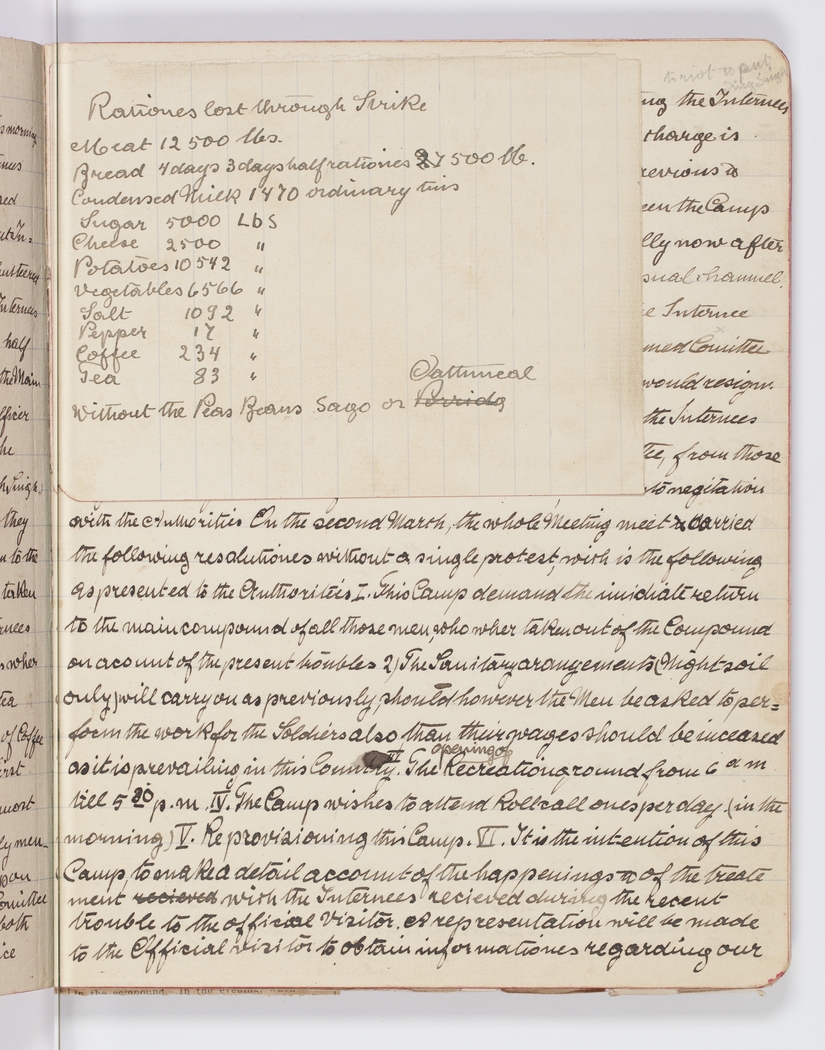 Rationes lost through Strike
Meat 12 500 lbs.
Bread 4 days 3 days half rationes 27500 lb.
Condensed Milk 1470 ordinary tins
Sugar 5000 LbS
Cheese 2500 "
Potatoes 10542 "
Vegetables 6566 "
Salt 1092 "
Pepper 17 "
Coffee 234 "
Tea 83 "
Oattmeal
Without the Peas Beans Sago or Porridg
ing the Internees
charge is
revious
een the Camp
lly now after
sual channel.
e Internee
med Comittee
would resign.
the Internees
tee, from those
to negitation
with the Authorities On the second March, the whole Meeting meet & carried
the following resolutiones without a single protest, wich is the following
as presented to the Authorities I. This Camp demand the imidiate return
to the main compound of all those men, who wher taken out of the Compound
on acount of the present troubles 2) The Sanitary arangements (Night soil
only) will carry on as previously, should however the Men be asked to per=
form the work for the Soldiers also than their wages should be inceased
opening of
as it is prevailing in this Country. III The Recreationground from 6 a m
till 5 30 p.m. IV. The Camp wishes to attend Rollcall ones per day. (in the
morning) V. Reprovisioning this Camp. VI. It is the intention of this
Camp, to make a detail account of the happenings of the treate
ment recieved wich the Internees recieved during the recent
trouble to the official Visitor. A representation will be made
to the Official visitor to obtain informationes regarding our
s morning
half
the Main
fficer
Singh.
they
n to the
taken
rnees
s wher
of Coffe
irst
most
ly men=
Comittee
both
in the compound. In the evening,